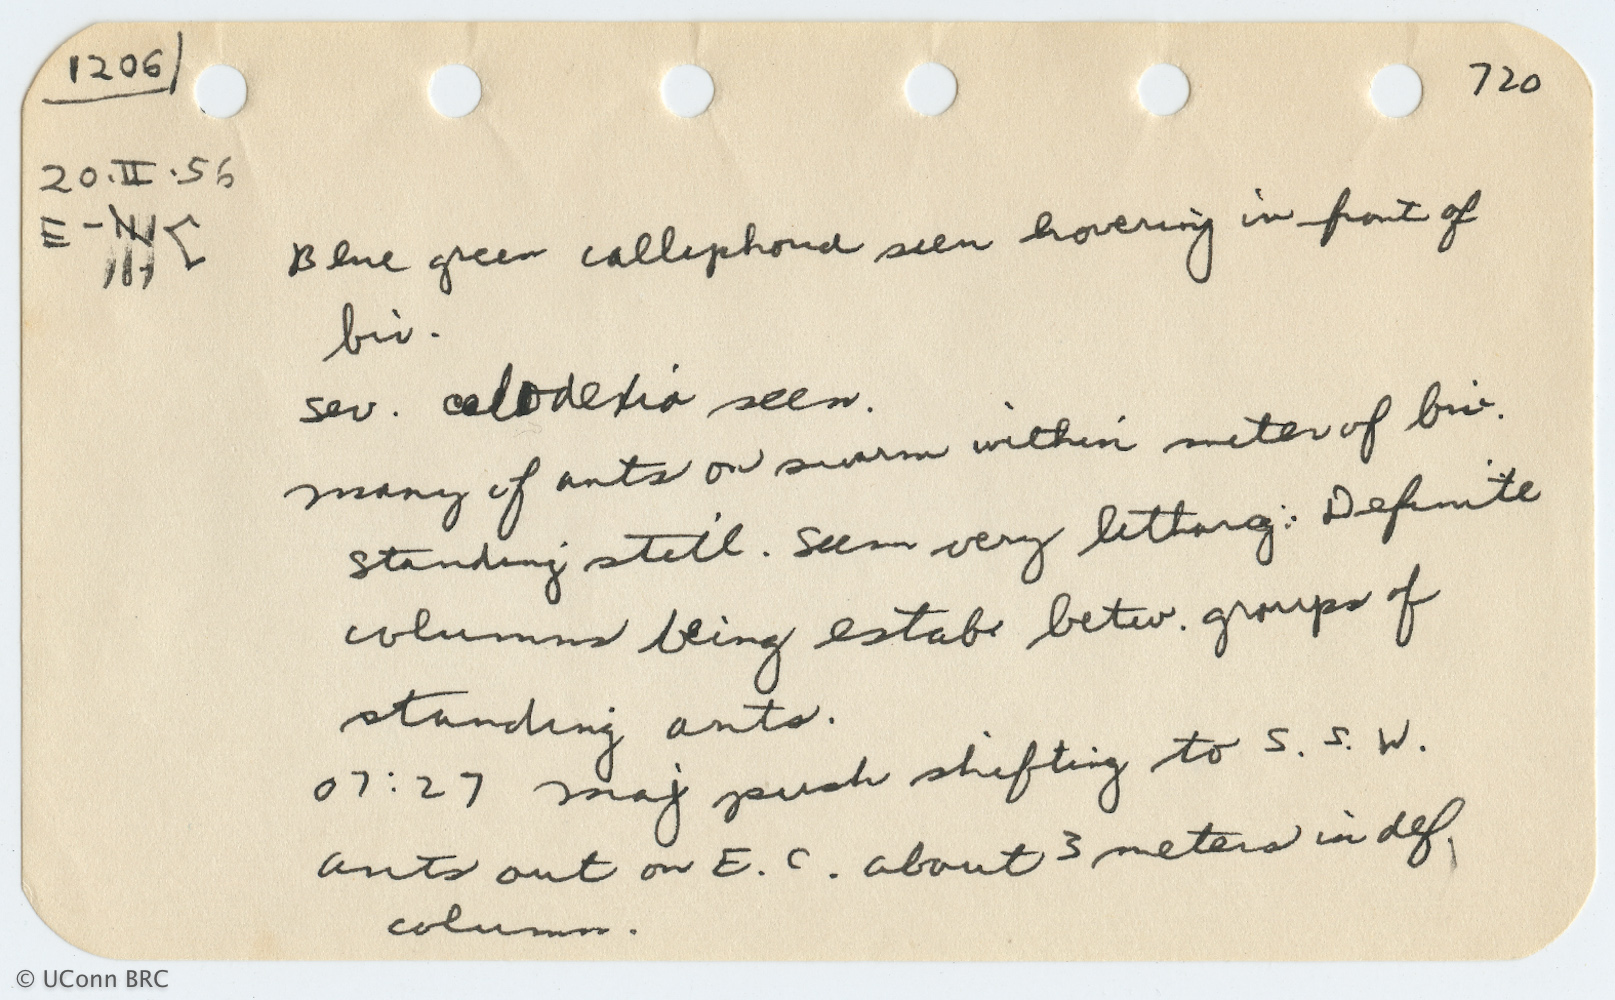 1206
720
20.II.56
Blue green calliphorid seen hovering in front of
biv.
sev. calodexia seen.
many of ants on swarm within meter of biv.
standing still. Seem very letharg. Definite
columns being estab. betw. groups of
standing ants.
07:27 maj push shifting to S. S. W.
ants out on E. C. about 3 meters in def.
column.
© UConn BRC